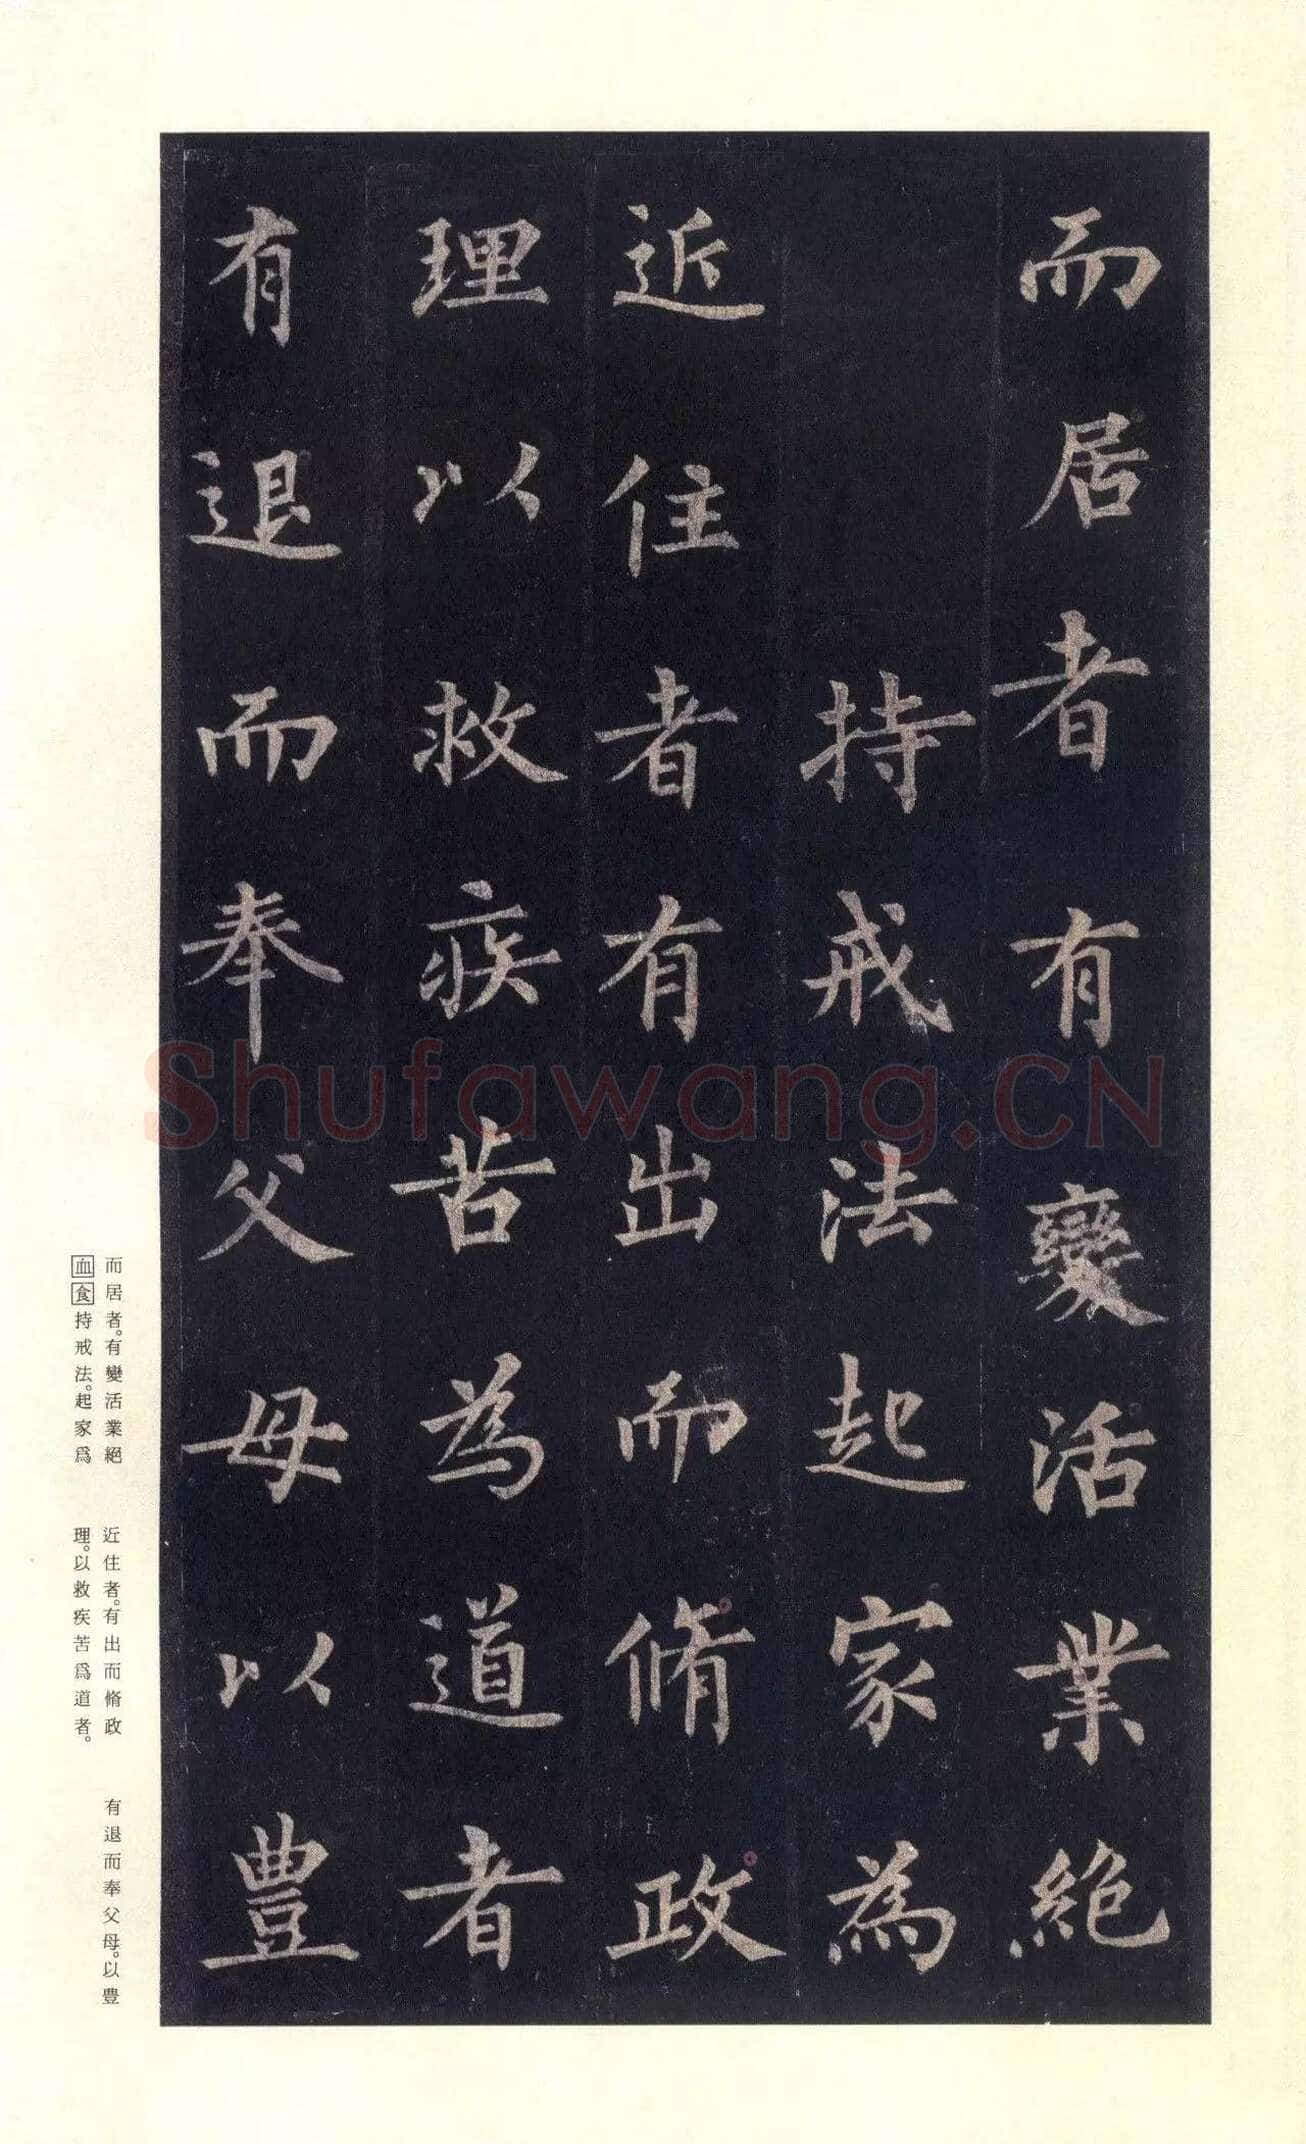 而居者有變活業絕
持戒法起家為
近住者有出而脩政
理以救疾苦為道者
有退而奉父母以豊
Shufawang.CN
而居者。有變活業絕
血食持戒法。起家爲
近住者。有出而脩政
理。以救疾苦爲道者。
有退而奉父母。以豊